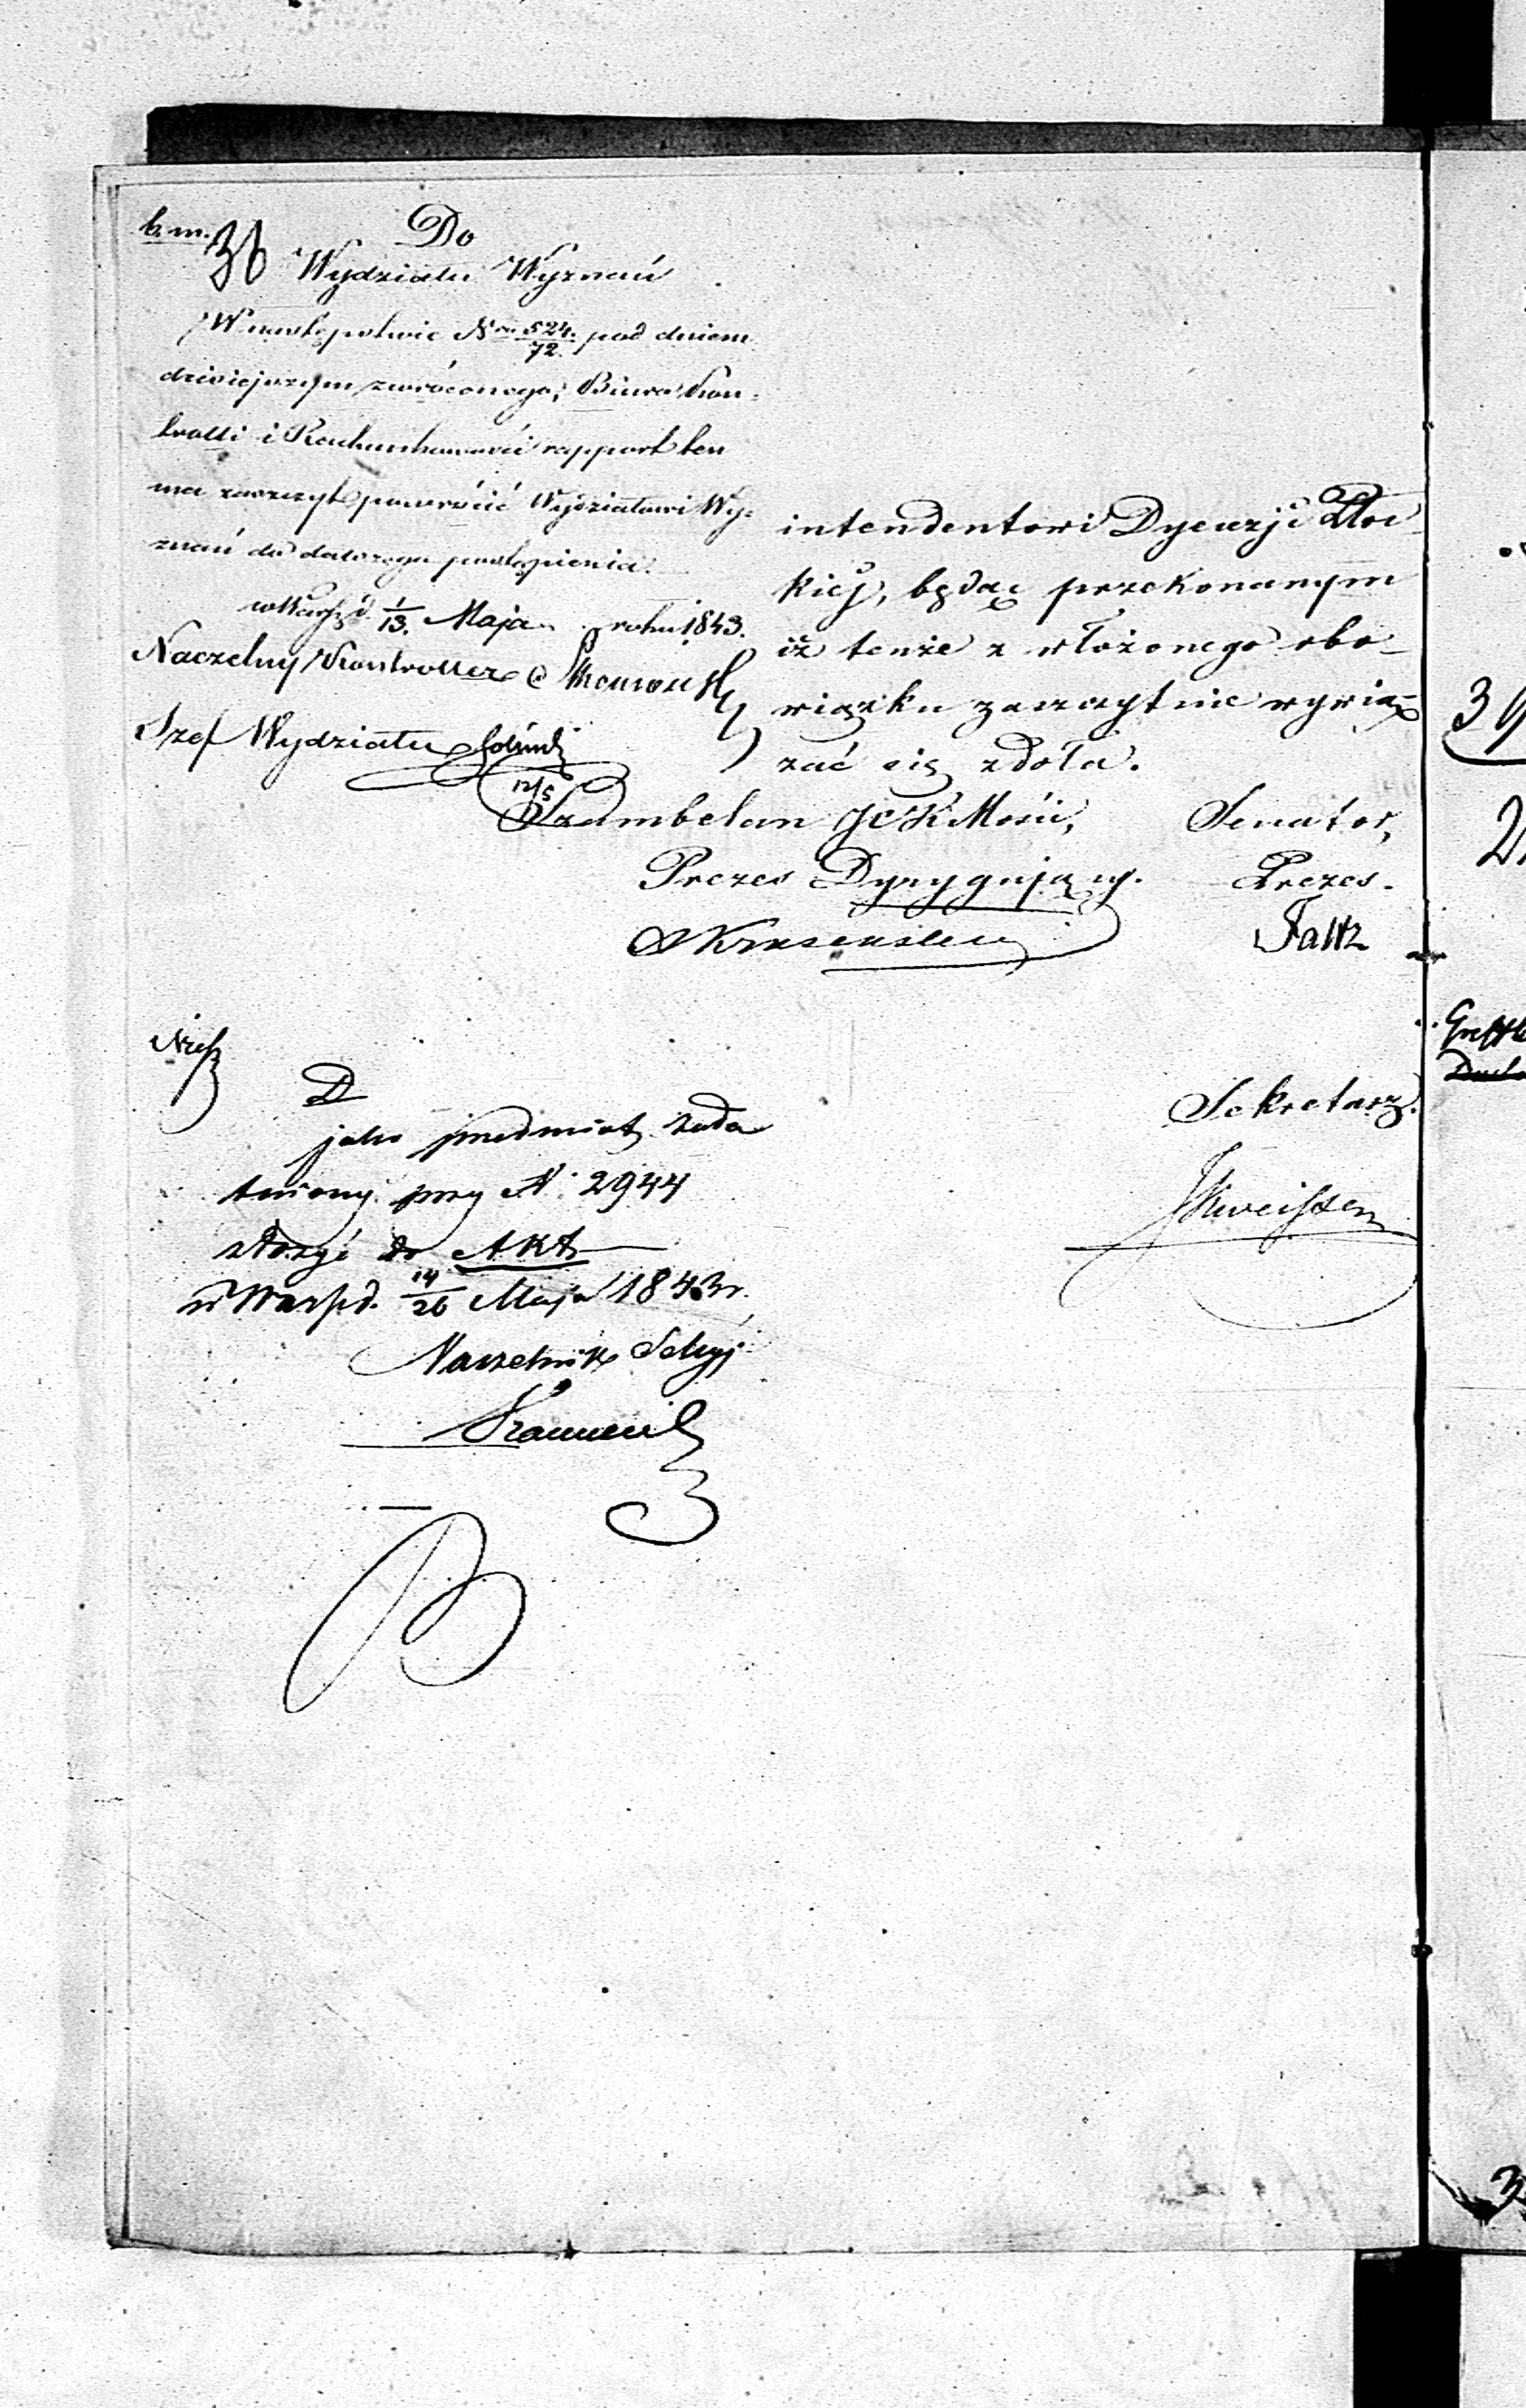 b. m.
36
Do
Wydziału Wyznań
W następstwie Nru 524/72. pod dniem
dzisiejszym zwróconego, Biuro Kon-
trolli i Rachunkowości rapport ten
ma zaszczyt powrócić Wydziałowi Wy-
znań do dalszego postąpienia.
w Warsz. d. 1/13. Maja roku 1843.
Naczelny Kontroller
Szef Wydziału
12/5
intendentowi Dyecezji Płoc-
kiej, będąc przekonanym
iż tenże z włożonego obo-
wiązku zaszczytnie wywią-
zać się zdoła.
Szambelan JCK Mości,
Prezes Dyrygujący.
Senator,
Prezes.
Faltz
Sekretarz.
D
jako przedmiot zała
twiony przy N. 2944
złożyć do Akt
w Warsz. d. 14/26 Maja 1843 r.
Naczelnik Sekcyi